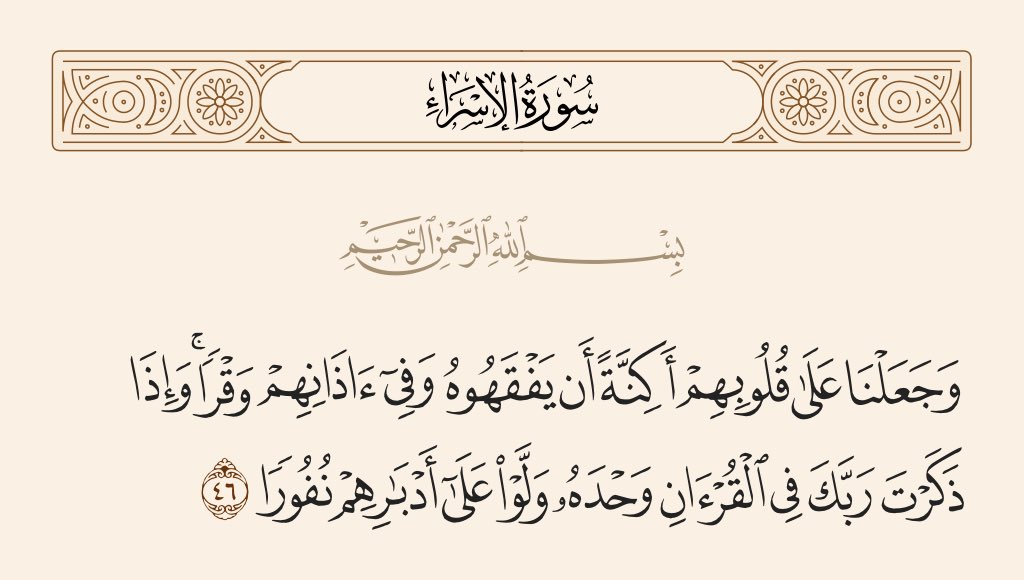 سُورَةُ الإِسْرَاءِ
بِسْمِ ٱللَّهِ ٱلرَّحْمَٰنِ ٱلرَّحِيمِ
وَجَعَلْنَا عَلَىٰ قُلُوبِهِمْ أَكِنَّةً أَن يَفْقَهُوهُ وَفِىٓ ءَاذَانِهِمْ وَقْرًا ۚ وَإِذَا
ذَكَرْتَ رَبَّكَ فِى ٱلْقُرْءَانِ وَحْدَهُۥ وَلَّوْا۟ عَلَىٰٓ أَدْبَٰرِهِمْ نُفُورًا ٤٦